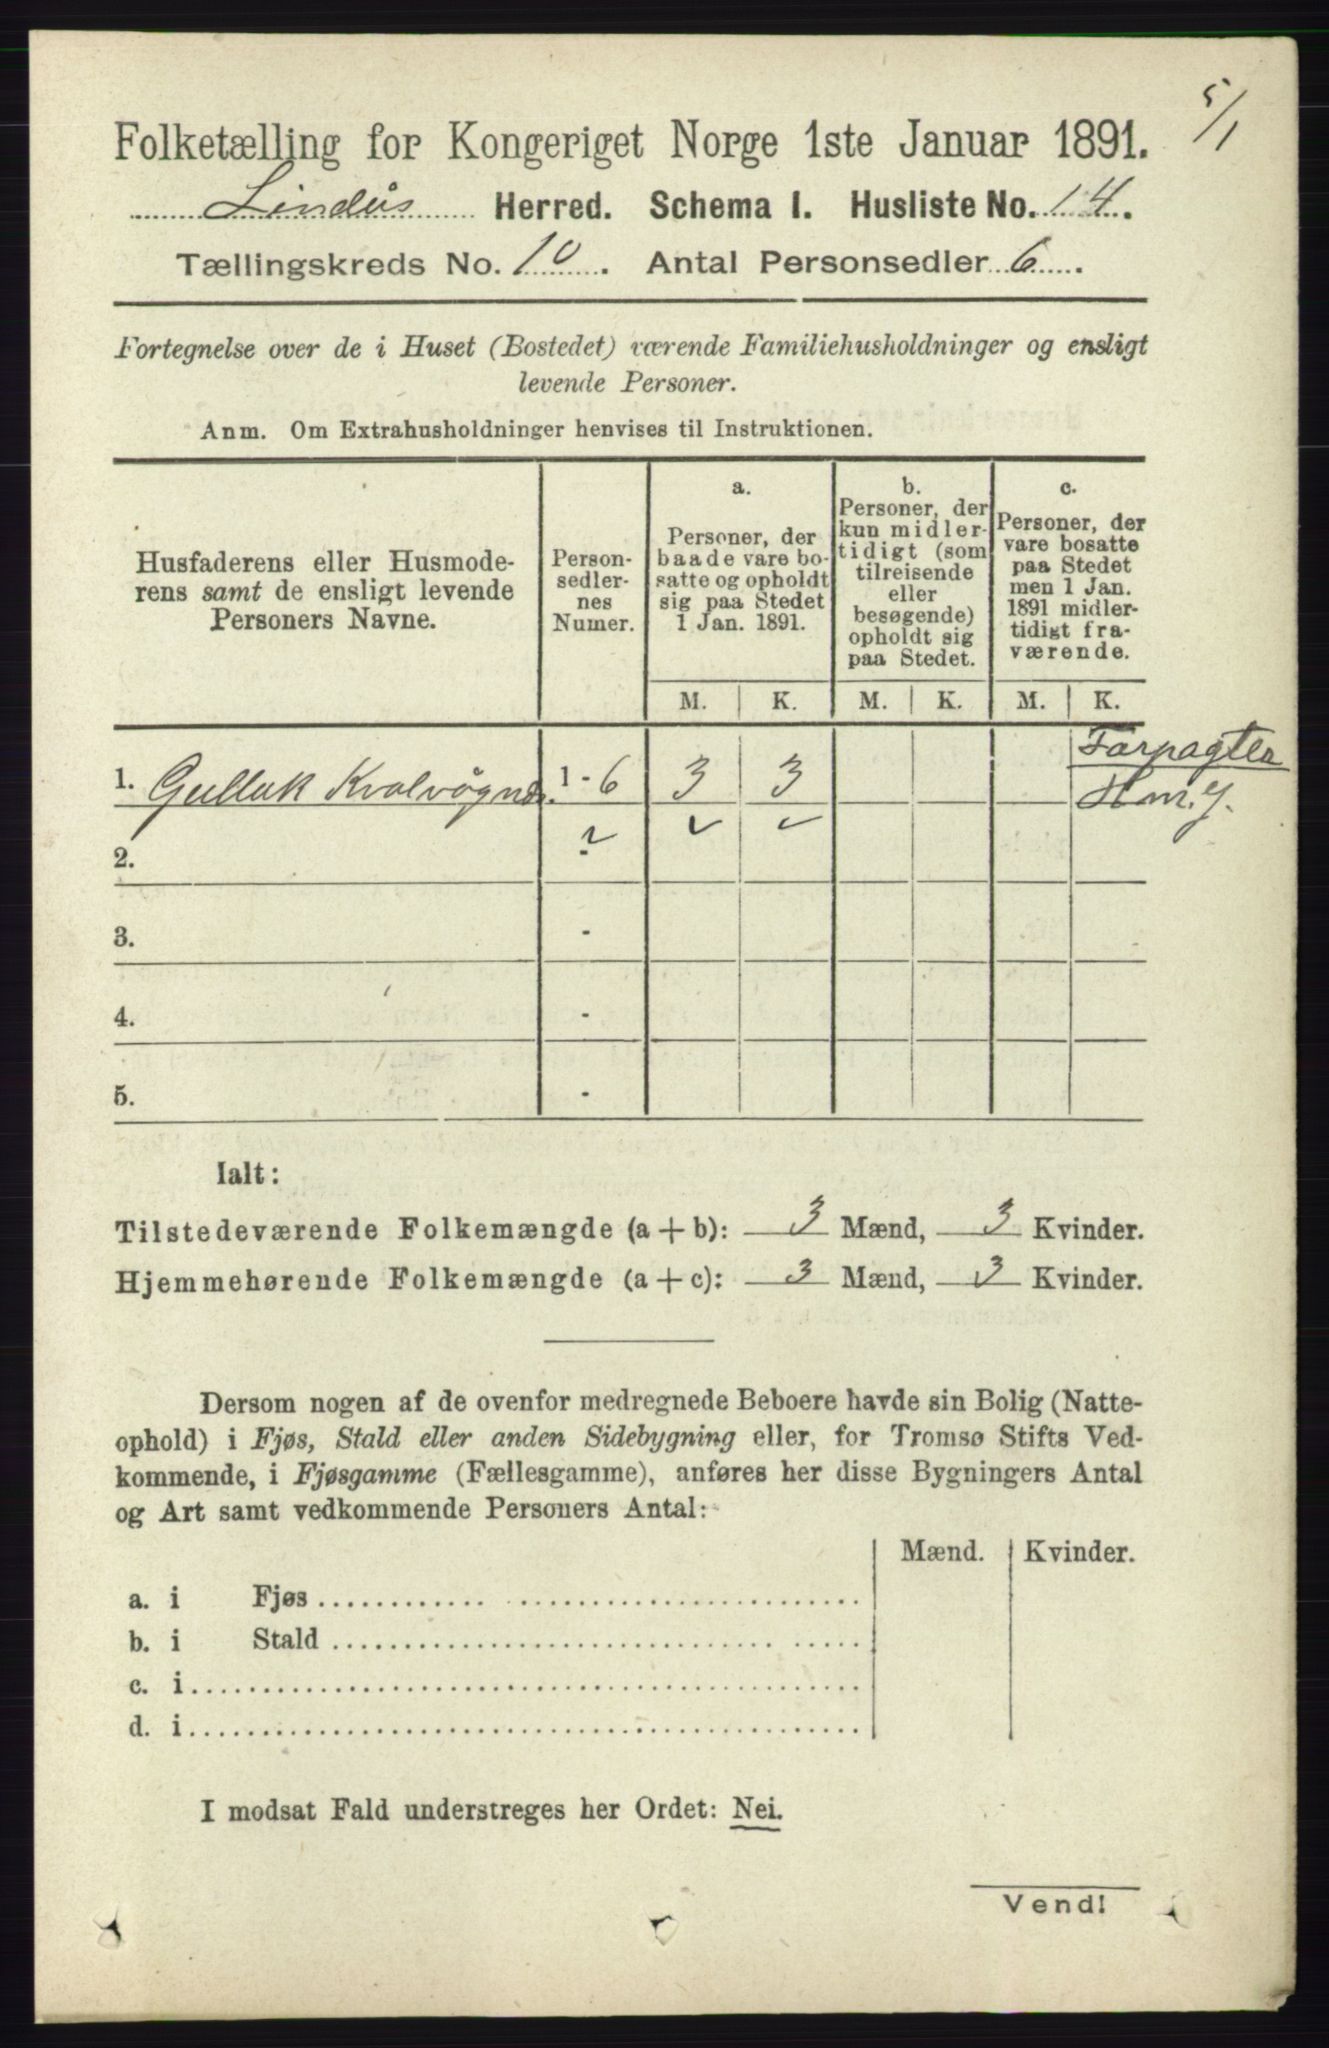 5/1
Folketælling for Kongeriget Norge 1ste Januar 1891.
Lindås Herred. Schema I. Husliste No. 14.
Tællingskreds No. 10. Antal Personsedler 6.
Fortegnelse over de i Huset (Bostedet) værende Familiehusholdninger og ensligt
levende Personer.
Anm. Om Extrahusholdninger henvises til Instruktionen.
Husfaderens eller Husmode-
rens samt de ensligt levende
Personers Navne.
Person-
sedler-
nes
Numer.
a.
Personer, der
baade vare bo-
satte og opholdt
sig paa Stedet
1 Jan. 1891.
b.
Personer, der
kun midler-
tidigt (som
tilreisende
eller
besøgende)
opholdt sig
paa Stedet.
c.
Personer, der
vare bosatte
paa Stedet
men 1 Jan.
1891 midler-
tidigt fra-
værende.
M. K. M. K. M. K.
1. Gulluk Kvalvøgnæs. 1 - 6 3 3 Forpagter
2. -
3. -
4. -
5. -
Ialt:
Tilstedeværende Folkemængde (a + b): 3 Mænd, 3 Kvinder.
Hjemmehørende Folkemængde (a + c): 3 Mænd, 3 Kvinder.
Dersom nogen af de ovenfor medregnede Beboere havde sin Bolig (Natte-
ophold) i Fjøs, Stald eller anden Sidebygning eller, for Tromsø Stifts Ved-
kommende, i Fjøsgamme (Fællesgamme), anføres her disse Bygningers Antal
og Art samt vedkommende Personers Antal:
Mænd. Kvinder.
a. i Fjøs
b. i Stald
c. i
d. i
I modsat Fald understreges her Ordet: Nei.
Vend!